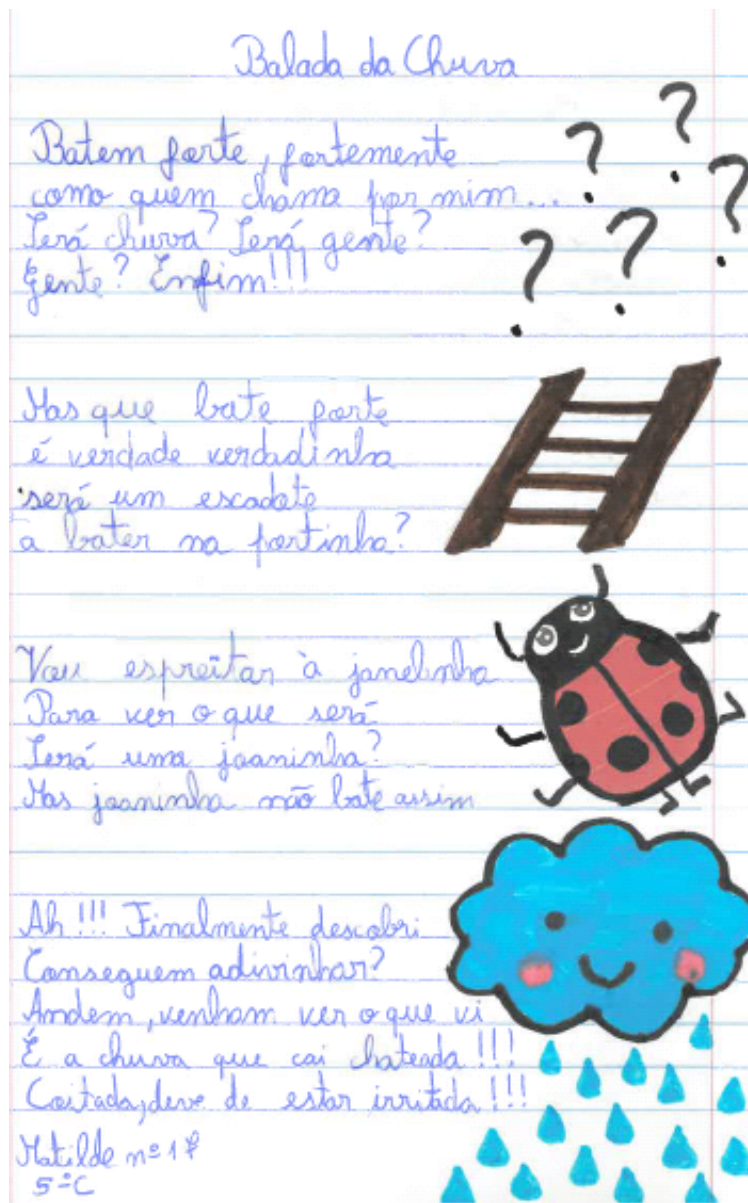 Balada da Chuva
Batem forte, fortemente
como quem chama por mim...
Será chuva? Será gente?
Gente? Enfim!!!
Mas que bate forte
é verdade verdadinha
será um escadote
a bater na portinha?
Vou espreitar à janelinha
Para ver o que será
Será uma joaninha?
Mas joaninha não bate assim
Ah!!! Finalmente descobri
Conseguem adivinhar?
Andem, venham ver o que vi
É a chuva que cai chateada!!!
Coitada, deve de estar irritada!!!
Matilde nº
5ºC